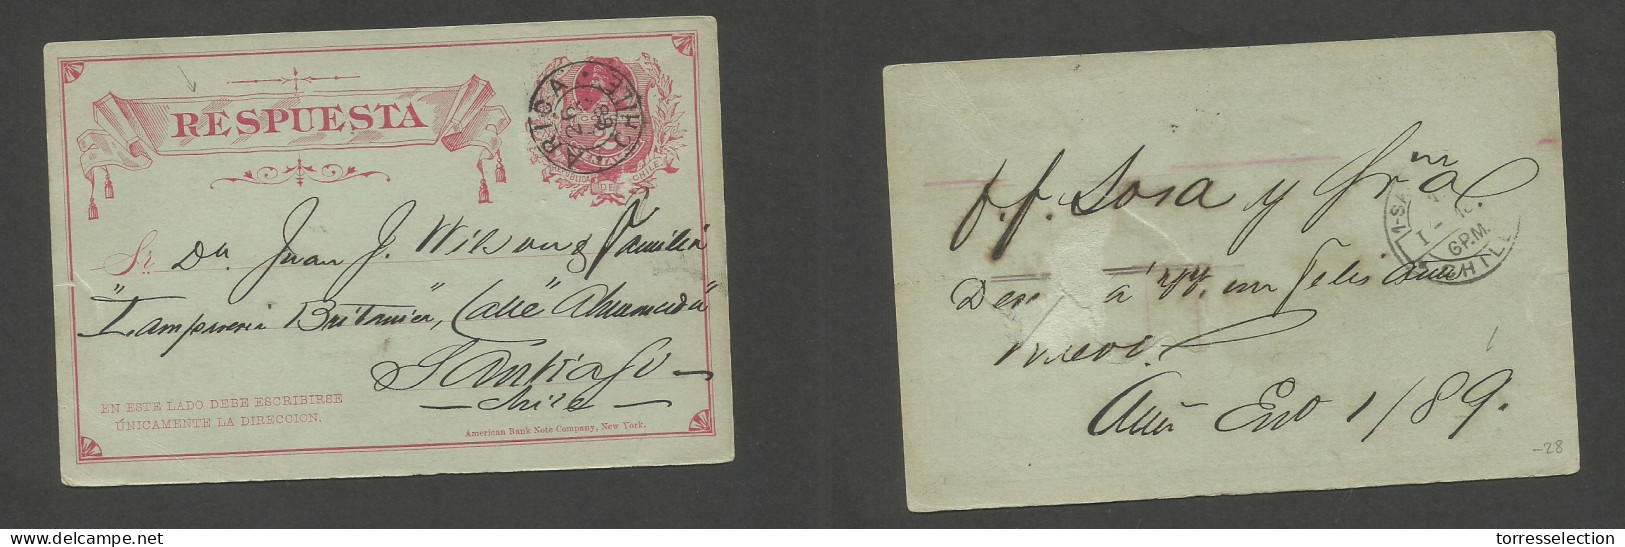 RESPUESTA
ARICA CHILE
26
REPUBLICA DE CHILE
Sr. Dn. Juan J. Wilson y Familia
"Lampareria Britanica", Calle "Ahumada"
Santiago
Chile
EN ESTE LADO DEBE ESCRIBIRSE
ÚNICAMENTE LA DIRECCION.
American Bank Note Company, New York.
f.f. Sosa y
1-SA
I
6 P.M.
CHILE
á un Feliz Año
nuevo.
Eno 1/89.
-28
torresselection